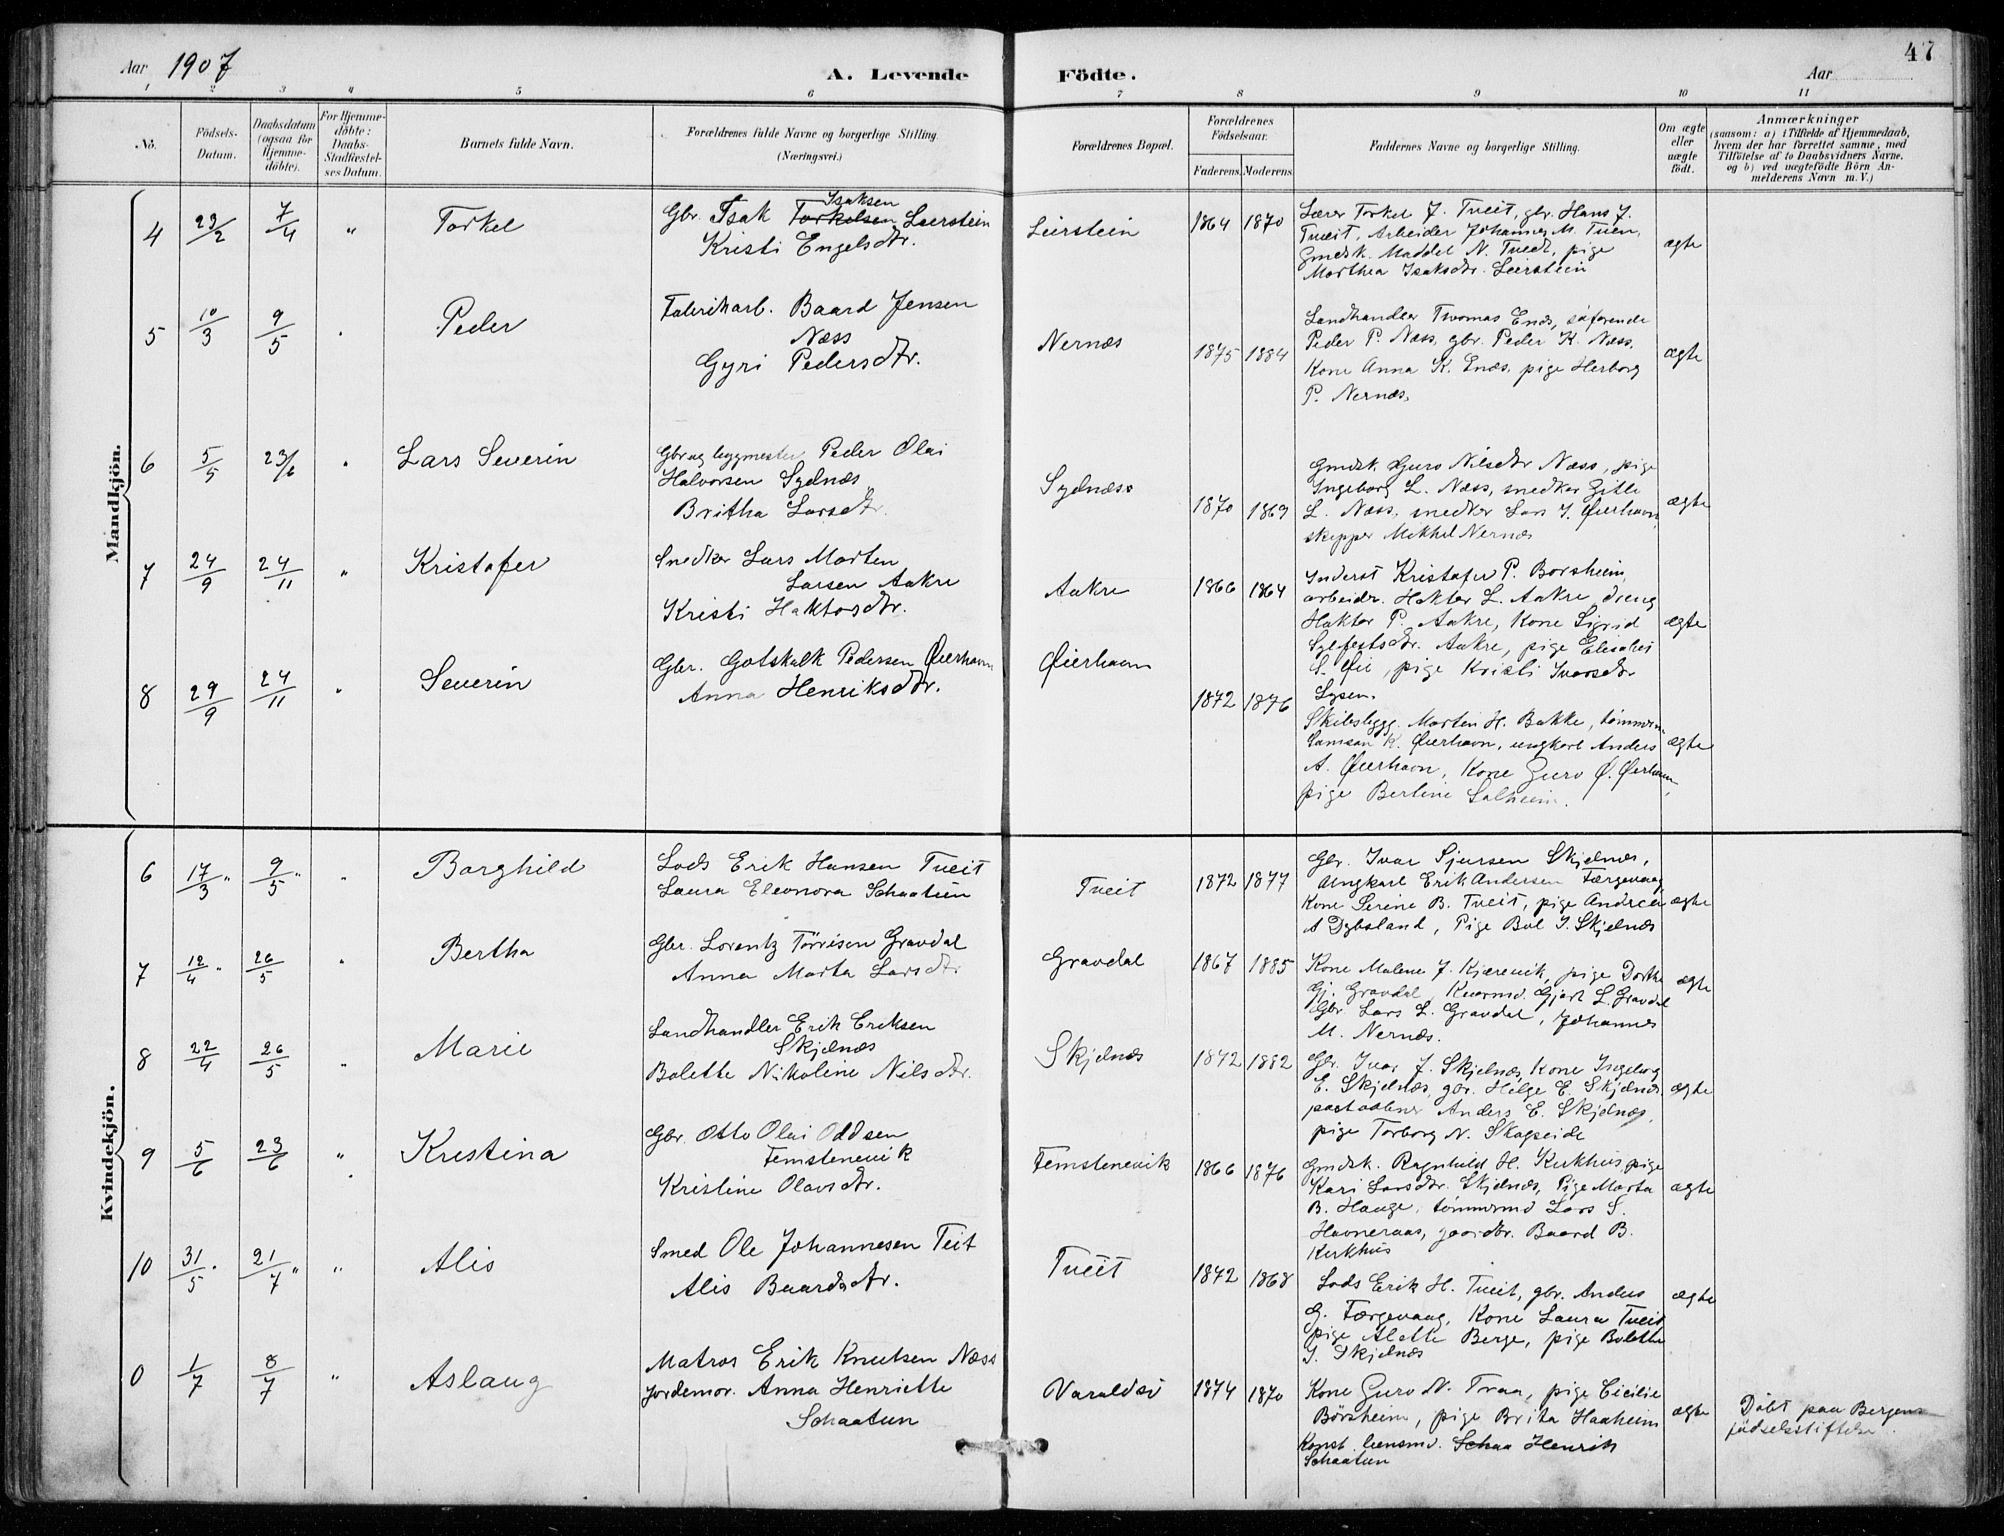 47
Aar 1907
A. Levende
Födte.
Aar
1 2 3 4 5 6 7 8 9 10 11
No.
Födsels-
Datum.
Daabsdatum
(ogsaa för
Hjemme-
döbte).
For Hjemme-
döbte:
Daabs-
Stadfæstel-
ses Datum.
Barnets fulde Navn.
Forældrenes fulde Navne og borgerlige Stilling.
(Næringsvei.)
Forældrenes Bopæl.
Forældrenes
Födselsaar.
Faderens. Moderens.
Faddernes Navne og borgerlige Stilling.
Om ægte
eller
uægte
födt.
Anmærkninger
(saasom: a) i Tilfælde af Hjemmedaab,
hvem der har forrettet samme, med
Tilföielse af to Daabsvidners Navne,
og b) ved uægtefödte Börn An-
melderens Navn m. V.)
Mandkjön.
4 23/2 7/4 " Torkel
Gbr. Isak Torkelsen Isaksen Leerstein
Kristi Engelsdtr.
Leirstein 1864 1870
Lærer Torkel J. Tveit, gbr. Hans J.
Tveit, Arbeider Johannes M. Tuen,
Gmdsk. Maddel N. Tvedt, pige
Marthea Isaksdtr. Leerstein
ægte
5 10/3 9/5 " Peder
Fabrikarb. Baard Jensen
Næss
Gyri Pedersdtr.
Nernæs 1875 1884
Landhandler Thomas Enæs, søfarende
Peder P. Næss, gbr. Peder K. Næss,
Kone Anna K. Enæs, pige Herborg
P. Nernæs.
ægte
6 5/5 23/6 " Lars Severin
Gbr og byggmester Peder Olai
Halvorsen Sydnæs
Britha Larsdtr.
Sydnæss 1870 1869
Gmdsk. Guro Nilsdtr Næss, pige
Ingeborg L. Næss, snedker Zitle
L. Næss, snedker Lars J. Øierhavn,
skipper Mikkel Nernæs
ægte
7 24/9 24/11 " Kristofer
Snedker Lars Marten
Larsen Aakre
Kristi Haktorsdtr.
Aakre 1866 1864
Inderst Kristofer P. Borsheim,
arbeidr. Haktor L. Aakre, dreng
Haktor P. Aakre, Kone Sigrid
Sjefestsdtr. Aakre, pige Elisabes
S. Øie, pige Kristi Ivarsdtr
Lysen.
ægte
8 29/9 24/11 " Severin
Gbr. Gotskalk Pedersen Øierhavn
Anna Henriksdtr.
Øierhavn 1872 1876
Skibsbygg. Marten H. Bakke, tømmerm.
Samson K. Øierhavn, ungkarl Anders
A. Øierhavn, Kone Guro Ø. Øierhavn,
pige Bertine Solheim.
ægte
Kvindekjön.
6 17/3 " 9/5 " " Borghild
Lods Erik Hansen Tveit
Laura Eleonora Schaatun
Tveit 1872 1877
Gbr. Ivar Sjursen Skjelnæs,
Ungkarl Erik Andersen Færgevaag
Kone Serine B. Tveit, pige Andrea
A Dybsland, Pige Bol I. Skjelnæs
ægte
7 12/4 " 26/5 " Bertha
Gbr. Lorentz Tørrisen Gravdal
Anna Marta Larsdtr
Gravdal 1867 1885
Kone Malene J. Kjærevik, pige Dorthe
Gj. Gravdal, Kvarmd. Gjert L. Gravdal
Gbr. Lars L. Gravdal, Johannes
M. Nernæs.
ægte
8 22/4 26/5 " Marie
Landhandler Erik Eriksen
Skjelnæs
Bolette Nikoline Nilsdtr.
Skjelnæs 1872 1882
Gbr. Ivar J. Skjelnæs, Kone Ingeborg
E. Skjelnæs, gbr. Helge E. Skjelnæs
postaabner Anders E. Skjelnæs,
pige Torborg N. Skogseide
ægte
9 5/6 23/6 " Kristina
Gbr. Otto Olai Oddsen
Femstenevik
Kristine Olavsdtr.
Femstenevik 1866 1876
Gmdsk. Ragnhild H. Kirkhus, pige
Kari Larsdtr. Skjelnæs, Pige Marta
B. Hauge, tømmermd Lars S.
Havneraas, gaardbr. Baard B.
Kirkhus
ægte
10 31/5 " 21/7 " " Alis
Smed Ole Johannesen Teit
Alis Baardsdtr.
Tveit 1872 1868
Lods Erik H. Tveit, gbr. Anders
G. Færgevaag, Kone Laura Tveit
pige Alette Berge, pige Bolette
I. Skjelnæs
ægte
0 1/7 8/7 " Aslaug
Matros Erik Knutsen Næss
Jordemor. Anna Henriette
Schaatun
Varaldsö 1874 1870
Kone Guro N. Traa, pige Cicilie
Børsheim, pige Brita Haaheim
Konst. lensmd. Schaa Henrik
Schaatun
ægte
Döbt paa Bergens
födselsstiftelse.